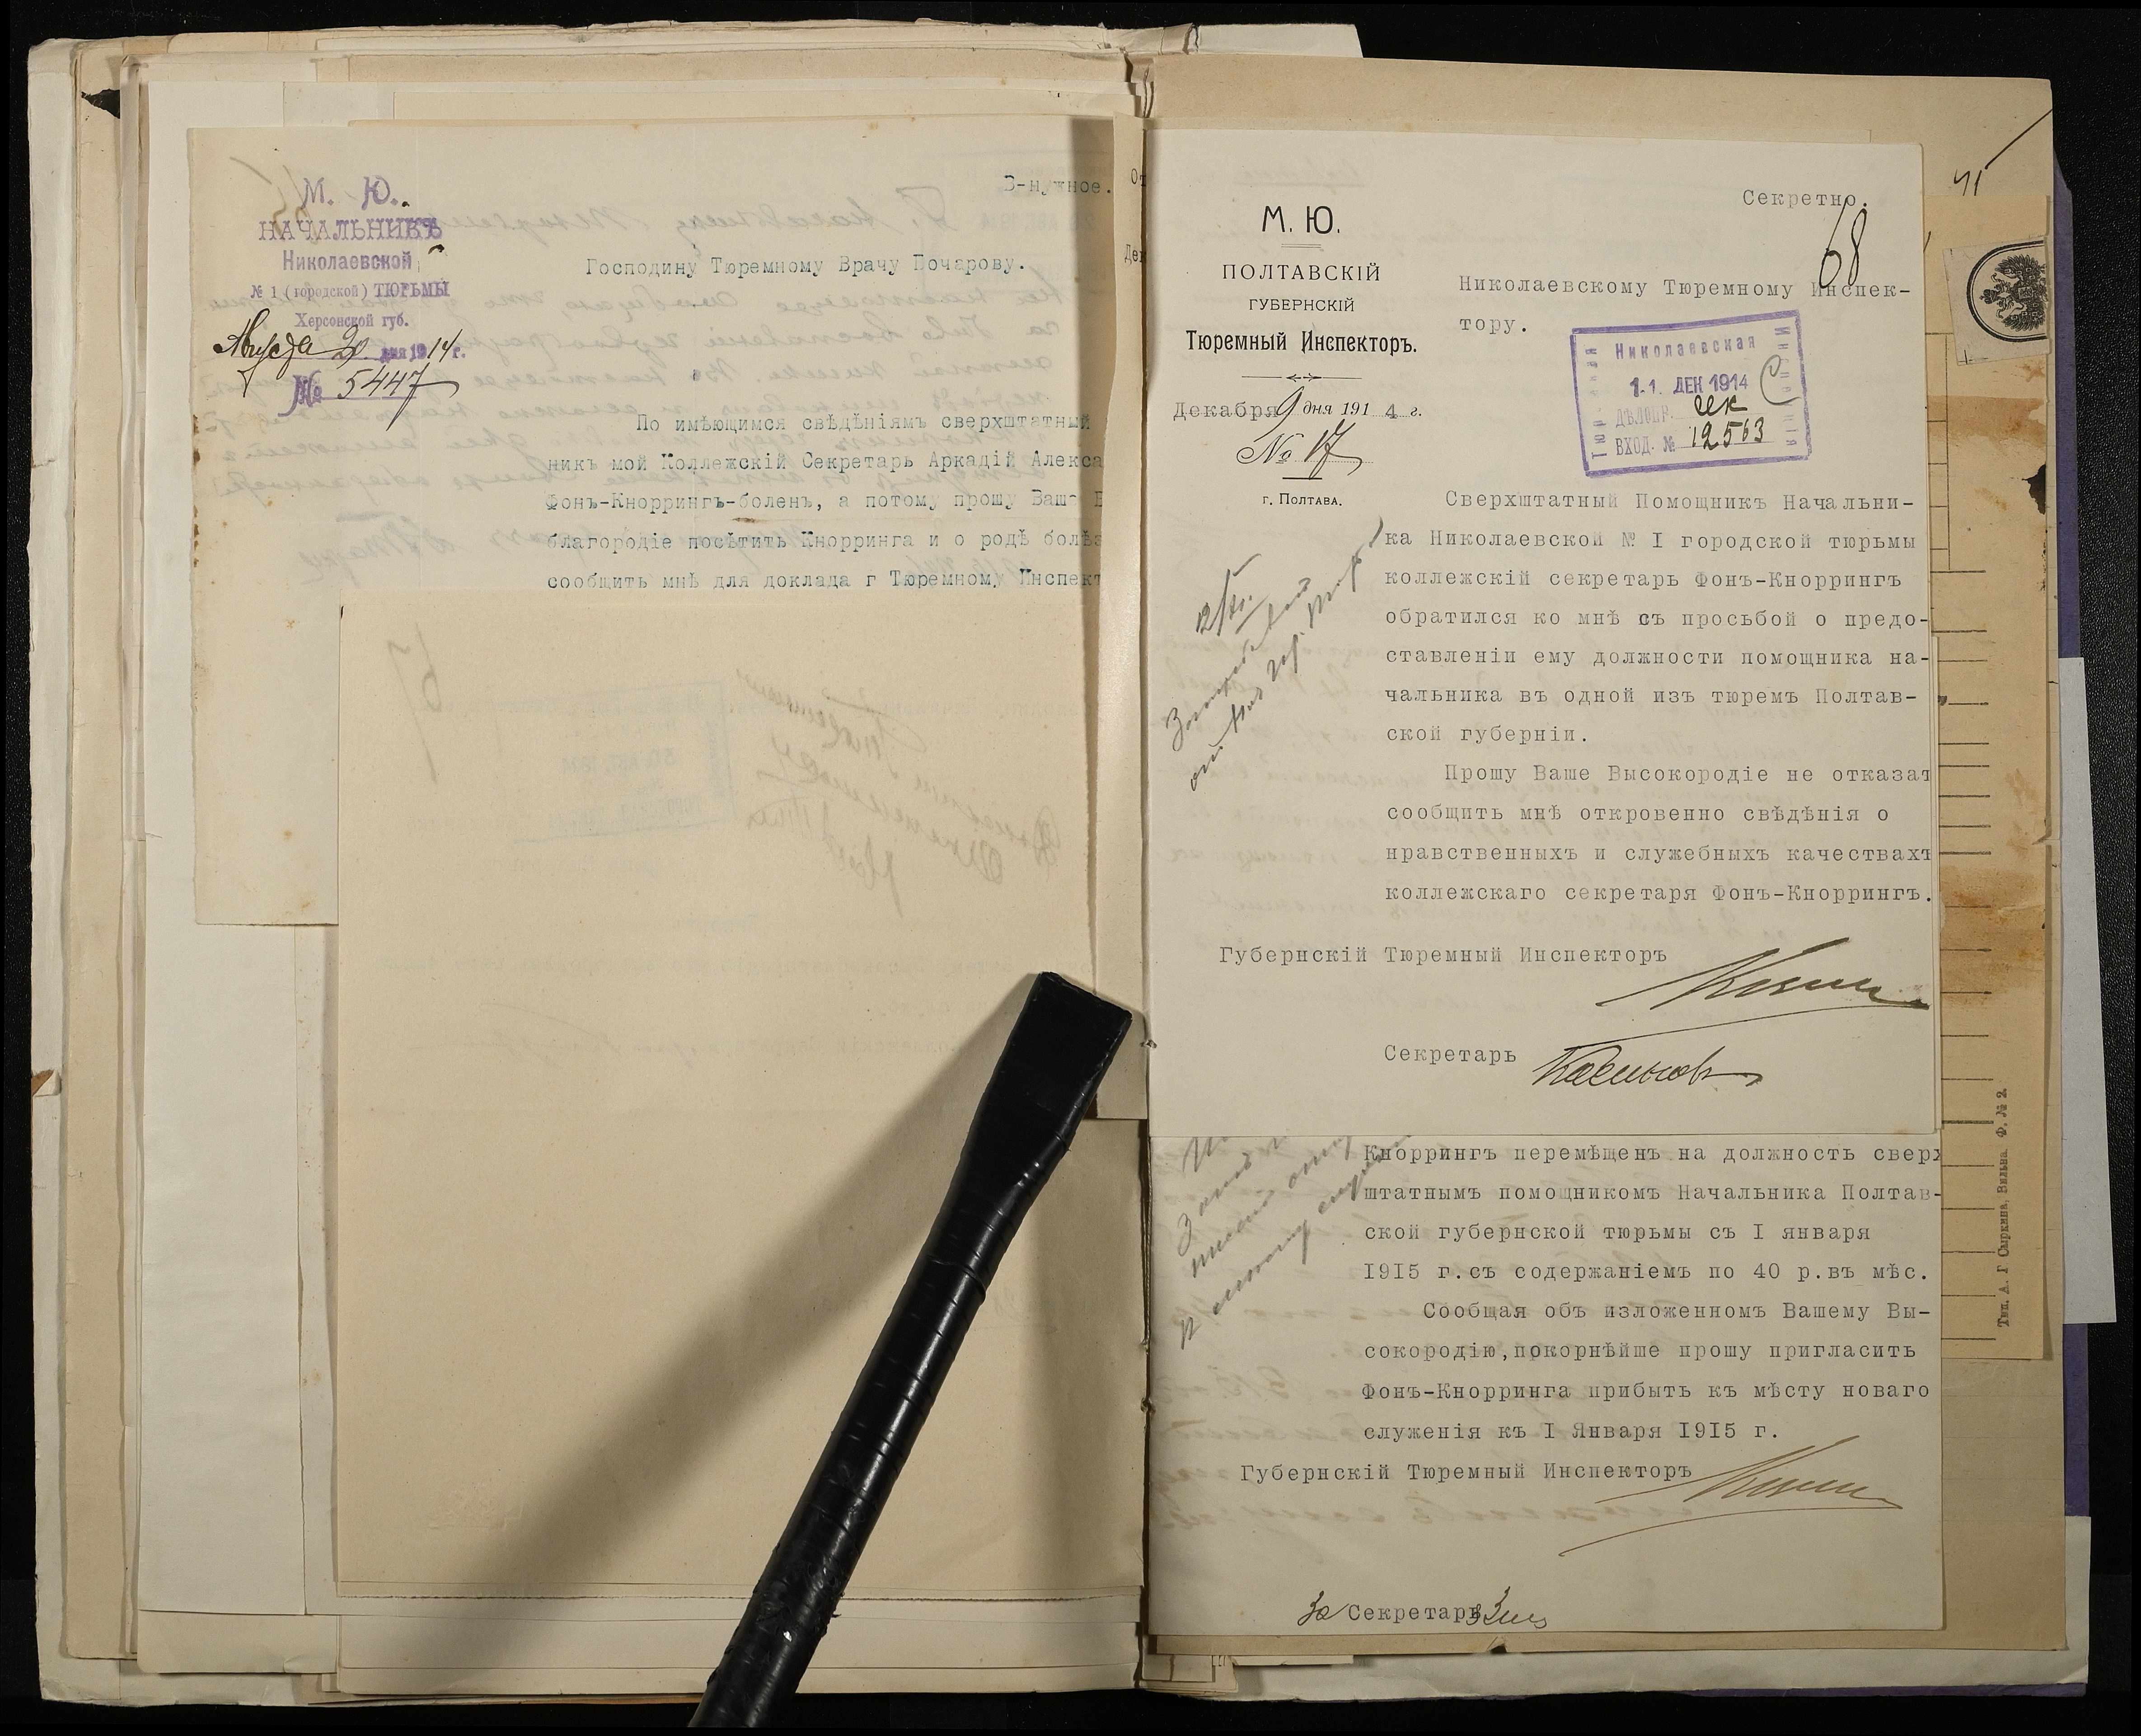 М. Ю.
НАЧАЛЬНИКЪ
Николаевской
№ 1 (городской) ТЮРЬМЫ
Херсонской губ.
Августа 20 дня 1914 г.
№ 5447
З-нужное.
Господину Тюремному Врачу Бочарову.
По имѣющимся свѣдѣніямъ сверхштатный
никъ мой Коллежскій Секретарь Аркадій Алекса
Фонъ-Кноррингъ-боленъ, а потому прошу Ваше Б
благородіе посѣтить Кнорринга и о родѣ болѣз
сообщить мнѣ для доклада г Тюремному Инспект
От
Дек
67
Секретно.
68
М. Ю.
ПОЛТАВСКІЙ
ГУБЕРНСКІЙ
Тюремный Инспекторъ.
Декабря 9 дня 1914 г.
№ 17
г. Полтава.
Николаевскому Тюремному Инспек-
тору.
Николаевская
11 ДЕК 1914
ДѢЛОПР.
ВХОД. № 12563
Сверхштатный Помощникъ Начальни-
ка Николаевской № I городской тюрьмы
коллежскій секретарь Фонъ-Кноррингъ
обратился ко мнѣ съ просьбой о предо-
ставленіи ему должности помощника на-
чальника въ одной изъ тюремъ Полтав-
ской губерніи.
Прошу Ваше Высокородіе не отказат
сообщить мнѣ откровенно свѣдѣнія о
нравственныхъ и служебныхъ качествахъ
коллежскаго секретаря Фонъ-Кноррингъ.
Губернскій Тюремный Инспекторъ
Секретарь
Кноррингъ перемѣщенъ на должность сверх
штатнымъ помощникомъ Начальника Полтав-
ской губернской тюрьмы съ I января
1915 г.съ содержаніемъ по 40 р.въ мѣс.
Сообщая объ изложенномъ Вашему Вы-
сокородію,покорнѣйше прошу пригласить
Фонъ-Кнорринга прибыть къ мѣсту новаго
служенія къ I Января 1915 г.
Губернскій Тюремный Инспекторъ
За Секретаръ
Тип. А. Г Сыркина, Вильна. Ф. № 2.